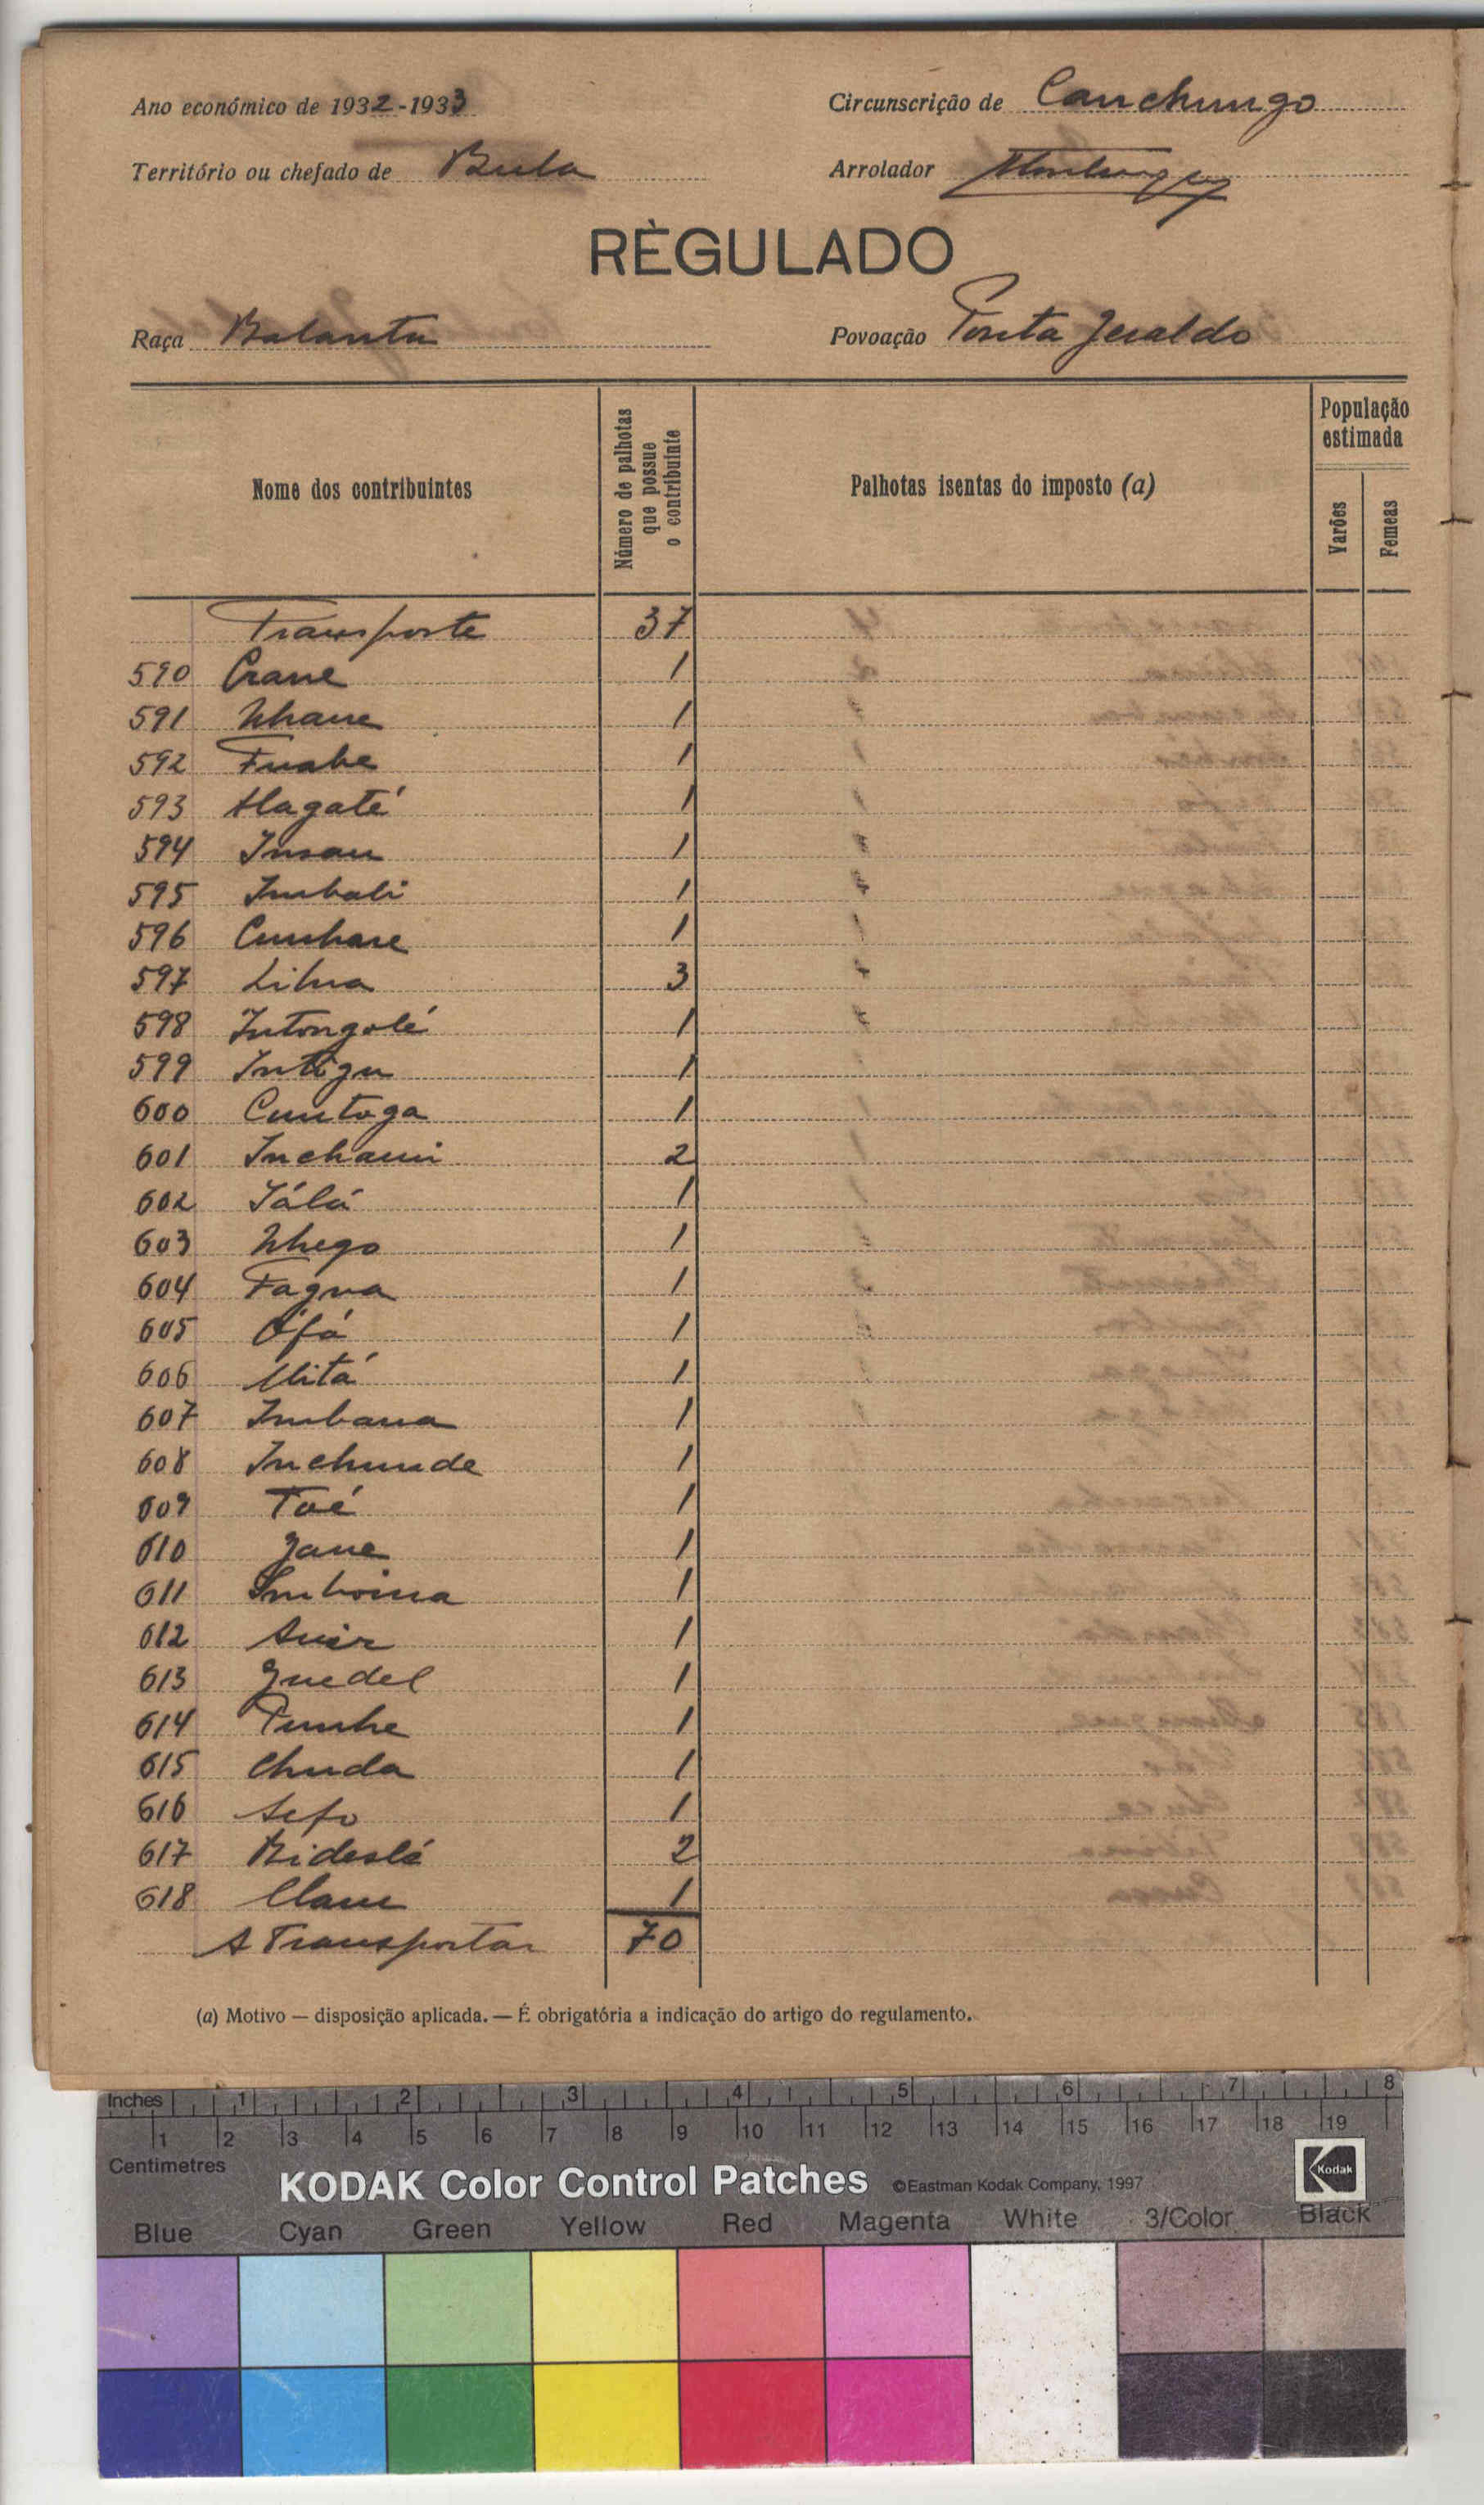 Ano económico de 1932-1933
Circunscrição de Canchungo
Território ou chefado de Bula
Arrolador
RÈGULADO
Raça Balanta
Povoação Ponta Jeraldo
Nome dos contribuintes
Número de palhotas que possue o contribuinte
Palhotas isentas do imposto (a)
População estimada
Varões
Femeas
Transporte 37
590 Crane 1
591 Nhane 1
592 Fuabe 1
593 Alagaté 1
594 Insau 1
595 Imbali 1
596 Cumhare 1
597 Lihna 3
598 Intongolé 1
599 Intigu 1
600 Cuntoga 1
601 Inchami 2
602 Iálá 1
603 Nhego 1
604 Fagna 1
605 Ófá 1
606 Mitá 1
607 Imbana 1
608 Inchunde 1
609 Toé 1
610 Jane 1
611 Imboina 1
612 1
613 Guedel 1
614 Tumhe 1
615 Chuda 1
616 Sefo 1
617 Bideslá 2
618 Clam 1
A Transportar 70
(a) Motivo — disposição aplicada. — É obrigatória a indicação do artigo do regulamento.
Inches 1 2 3 4 5 6 7 8
1 2 3 4 5 6 7 8 9 10 11 12 13 14 15 16 17 18 19
Centimetres
KODAK Color Control Patches ©Eastman Kodak Company, 1997
Kodak
Blue Cyan Green Yellow Red Magenta White 3/Color Black